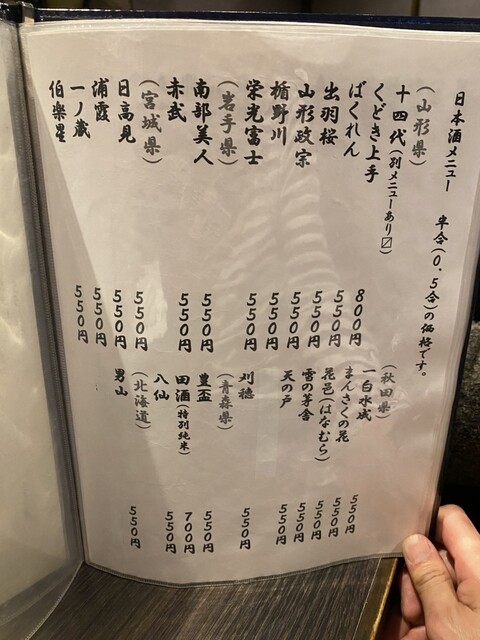 日本酒メニュー 半合(0.5合)の価格です。
(山形県)
十四代(別メニューあり〼)
くどき上手 800円
ばくれん 550円
出羽桜 550円
山形政宗 550円
楯野川 550円
栄光富士 550円
(岩手県)
南部美人 550円
赤武 550円
(宮城県)
日高見 550円
浦霞 550円
一ノ蔵 550円
伯楽星 550円
(秋田県)
一白水成 550円
まんさくの花 550円
花邑(はなむら) 550円
雪の茅舎 550円
天の戸 550円
刈穂 550円
(青森県)
豊盃 550円
田酒(特別純米) 700円
八仙 550円
(北海道)
男山 550円